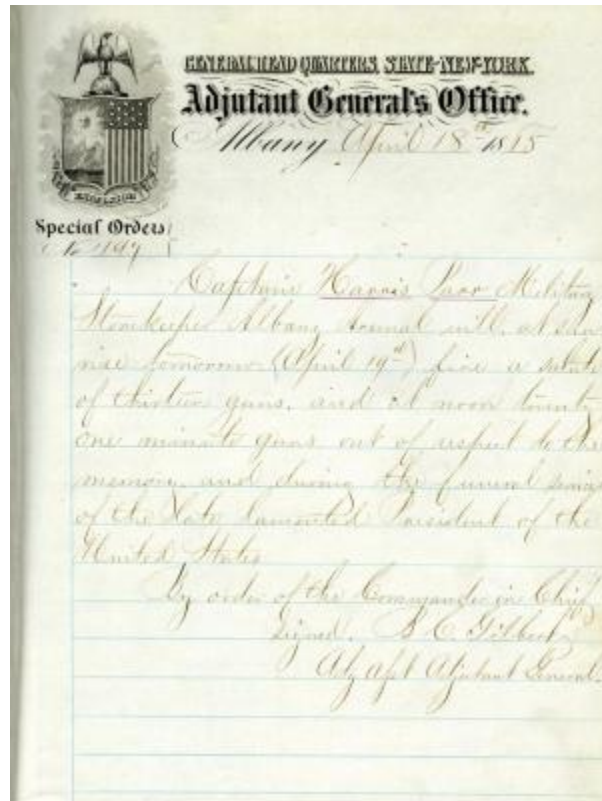 GENERAL HEAD QUARTERS, STATE-NEW-YORK.
Adjutant General's Office.
Albany April 18th 1865
EXCELSIOR
Special Orders
No 197
Captain Harris Parr Military
Storekeeper Albany Arsenal will, at sun
rise tomorrow (April 19th) fire a salute
of thirteen guns, and at noon twenty
one minute guns out of respect to the
memory, and during the funeral service
of the late lamented President of the
United States
By order of the Commander in Chief
Signed. B. C. Gilbert
Adjutant General.